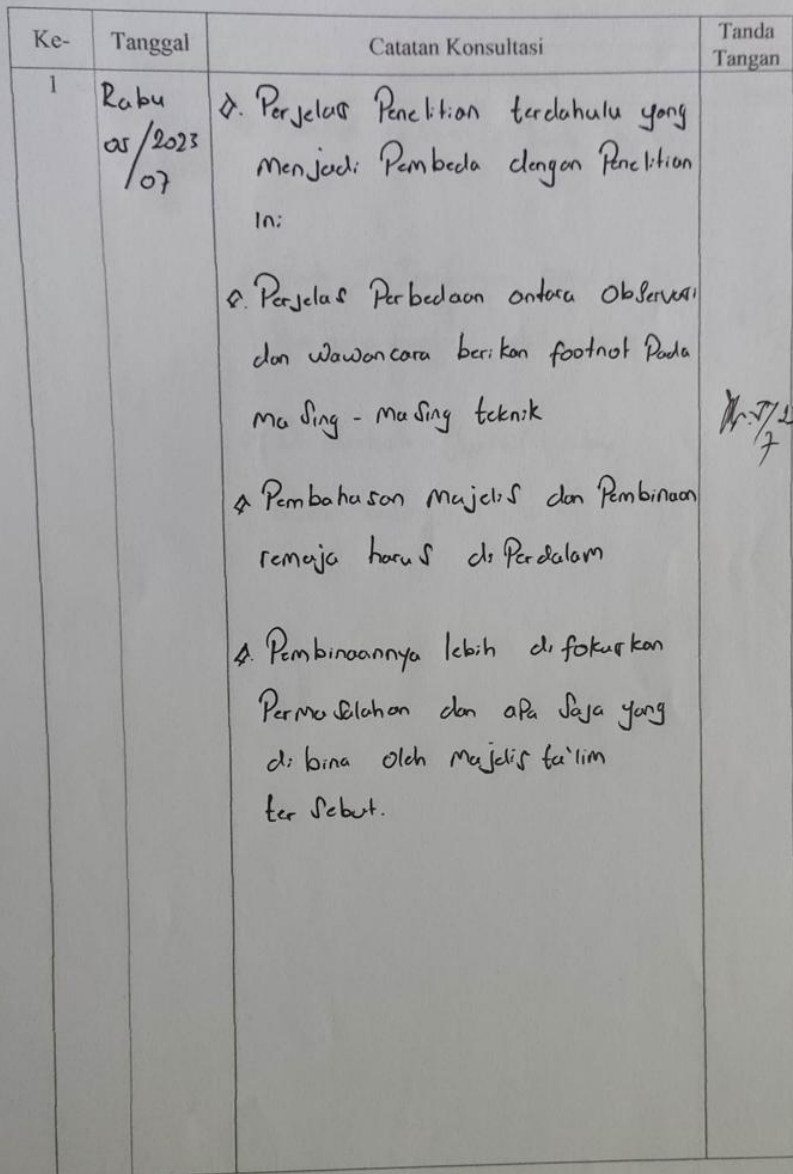 Ke- Tanggal Catatan Konsultasi Tanda Tangan
1 Rabu
05/2023
/07
Perjelas Penelitian terdahulu yang
Menjadi Pembeda dengan Penelitian
Ini
Perjelas Perbedaan antara Observasi
dan Wawancara berikan footnot Pada
Masing - Masing teknik
Pembahasan Majelis dan Pembinaan
remaja harus di Perdalam
Pembinaannya lebih di fokuskan
Permasalahan dan apa Saja yang
di bina oleh Majelis ta'lim
ter Sebut.